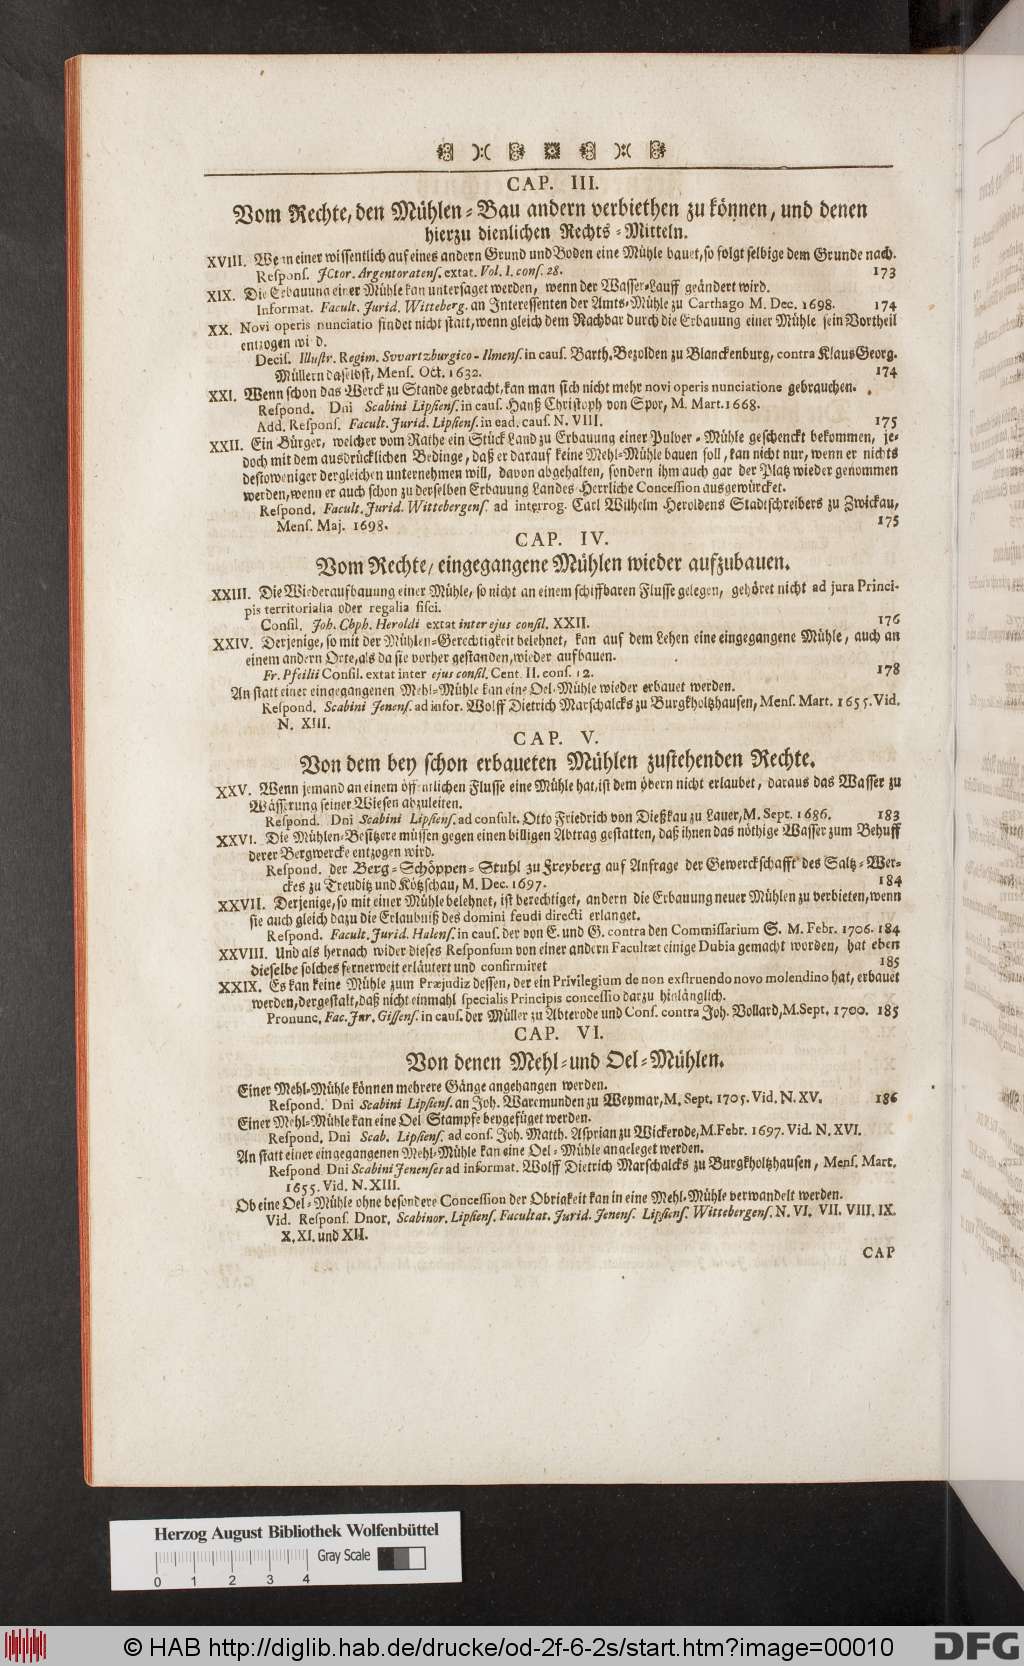 CAP. III.
Vom Rechte, den Mühlen-Bau andern verbiethen zu können, und denen
hierzu dienlichen Rechts-Mitteln.
XVIII. Wenn einer wissentlich auf eines andern Grund und Boden eine Mühle bauet, so folgt selbige dem Grunde nach.
Respons. JCtor. Argentoratens. extat. Vol. I. cons. 28. 173
XIX. Die Erbauung einer Mühle kan untersaget werden, wenn der Wasser-Lauff geändert wird.
Informat. Facult. Jurid. Witteberg. an Interessenten der Amts-Mühle zu Carthago M. Dec. 1698. 174
XX. Novi operis nunciatio findet nicht statt, wenn gleich dem Nachbar durch die Erbauung einer Mühle sein Vortheil
entzogen wird.
Decis. Illustr. Regim. Svvartzburgico-Ilmens. in caus. Barth. Bezolden zu Blanckenburg, contra Klaus Georg.
Müllern daselbst, Mens. Oct. 1632. 174
XXI. Wenn schon das Werck zu Stande gebracht, kan man sich nicht mehr novi operis nunciatione gebrauchen.
Respond. Dni Scabini Lipsiens. in caus. Hanß Christoph von Spor, M. Mart. 1668.
Add. Respons. Facult. Jurid. Lipsiens. in ead. caus. N. VIII. 175
XXII. Ein Bürger, welcher vom Rathe ein Stück Land zu Erbauung einer Pulver-Mühle geschenckt bekommen, je-
doch mit dem ausdrücklichen Bedinge, daß er darauf keine Mehl-Mühle bauen soll, kan nicht nur, wenn er nichts
destoweniger dergleichen unternehmen will, davon abgehalten, sondern ihm auch gar der Platz wieder genommen
werden, wenn er auch schon zu derselben Erbauung Landes-Herrliche Concession ausgewürcket.
Respond. Facult. Jurid. Wittebergens. ad interrog. Carl Wilhelm Heroldens Stadtschreibers zu Zwickau,
Mens. Maj. 1698. 175
CAP. IV.
Vom Rechte, eingegangene Mühlen wieder aufzubauen.
XXIII. Die Wiederaufbauung einer Mühle, so nicht an einem schiffbaren Flusse gelegen, gehöret nicht ad jura Princi-
pis territorialia oder regalia fisci.
Consil. Joh. Chph. Heroldi extat inter ejus consil. XXII. 176
XXIV. Derjenige, so mit der Mühlen-Gerechtigkeit belehnet, kan auf dem Lehen eine eingegangene Mühle, auch an
einem andern Orte, als da sie vorher gestanden, wieder aufbauen.
Fr. Pfeilii Consil. extat inter ejus consil. Cent. II. cons. 12. 178
An statt einer eingegangenen Mehl-Mühle kan eine Oel-Mühle wieder erbauet werden.
Respond. Scabini Jenens. ad infor. Wolff Dietrich Marschalcks zu Burgkholtzhausen, Mens. Mart. 1655. Vid.
N. XIII.
CAP. V.
Von dem bey schon erbaueten Mühlen zustehenden Rechte.
XXV. Wenn jemand an einem öffentlichen Flusse eine Mühle hat, ist dem öbern nicht erlaubet, daraus das Wasser zu
Wässerung seiner Wiesen abzuleiten.
Respond. Dni Scabini Lipsiens. ad consult. Otto Friedrich von Dießkau zu Lauer, M. Sept. 1686. 183
XXVI. Die Mühlen-Besitzere müssen gegen einen billigen Abtrag gestatten, daß ihnen das nöthige Wasser zum Behuff
derer Bergwercke entzogen wird.
Respond. der Berg-Schöppen-Stuhl zu Freyberg auf Anfrage der Gewerckschafft des Saltz-Wer-
ckes zu Treuditz und Kötzschau, M. Dec. 1697. 184
XXVII. Derjenige, so mit einer Mühle belehnet, ist berechtiget, andern die Erbauung neuer Mühlen zu verbieten, wenn
sie auch gleich dazu die Erlaubniß des domini feudi directi erlanget.
Respond. Facult. Jurid. Halens. in caus. der von E. und G. contra den Commissarium S. M. Febr. 1706. 184
XXVIII. Und als hernach wider dieses Responsum von einer andern Facultæt einige Dubia gemacht worden, hat eben
dieselbe solches fernerweit erläutert und confirmiret 185
XXIX. Es kan keine Mühle zum Præjudiz dessen, der ein Privilegium de non exstruendo novo molendino hat, erbauet
werden, dergestalt, daß nicht einmahl specialis Principis concessio darzu hinlänglich.
Pronunc. Fac. Jur. Gissens. in caus. der Müller zu Abterode und Cons. contra Joh. Vollard, M. Sept. 1700. 185
CAP. VI.
Von denen Mehl-und Oel-Mühlen.
Einer Mehl-Mühle können mehrere Gänge angehangen werden.
Respond. Dni Scabini Lipsiens. an Joh. Waremunden zu Weymar, M. Sept. 1705. Vid. N. XV. 186
Einer Mehl-Mühle kan eine Oel Stampfe beygefüget werden.
Respond. Dni Scab. Lipsiens. ad cons. Joh. Matth. Asprian zu Wickerode, M. Febr. 1697. Vid. N. XVI.
An statt einer eingegangenen Mehl-Mühle kan eine Oel-Mühle angeleget werden.
Respond Dni Scabini Jenenses ad informat. Wolff Dietrich Marschalcks zu Burgkholtzhausen, Mens. Mart.
1655. Vid. N. XIII.
Ob eine Oel-Mühle ohne besondere Concession der Obrigkeit kan in eine Mehl-Mühle verwandelt werden.
Vid. Respons. Dnor. Scabinor. Lipsiens. Facultat. Jurid. Jenens. Lipsiens. Wittebergens. N. VI. VII. VIII. IX.
X. XI. und XII.
CAP
Herzog August Bibliothek Wolfenbüttel
Gray Scale
0 1 2 3 4
© HAB http://diglib.hab.de/drucke/od-2f-6-2s/start.htm?image=00010
DFG